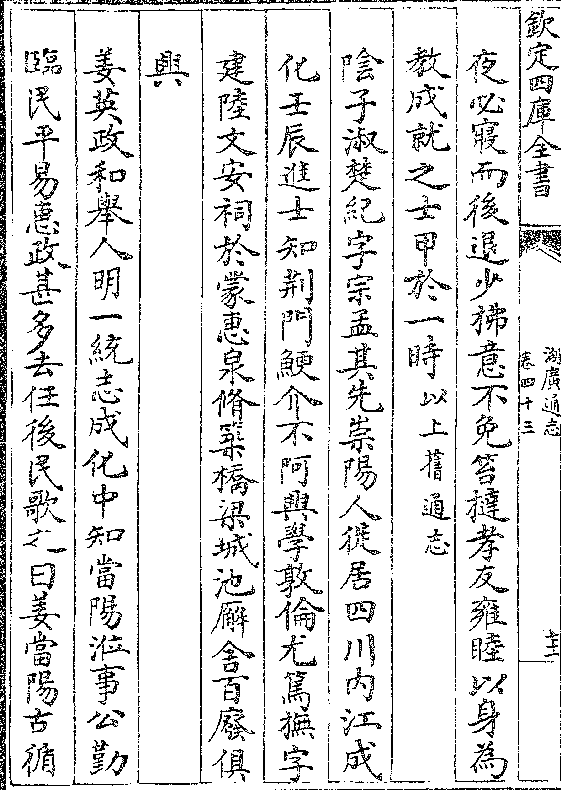 欽定四庫全書
湖廣通志
卷四十三
夜必寢而後退少拂意不免笞撻孝友雍睦以身為
教成就之士甲於一時以上舊通志
陰子淑楚紀字宗孟其先崇陽人徙居四川内江成
化壬辰進士知荆門鯁介不阿興學敦倫尤篤撫字
建陸文安祠於蒙惠泉脩築橋梁城池廨舍百廢俱
興
姜英政和舉人明一統志成化中知當陽涖事公勤
臨民平易惠政甚多去任後民歌之曰姜當陽古循